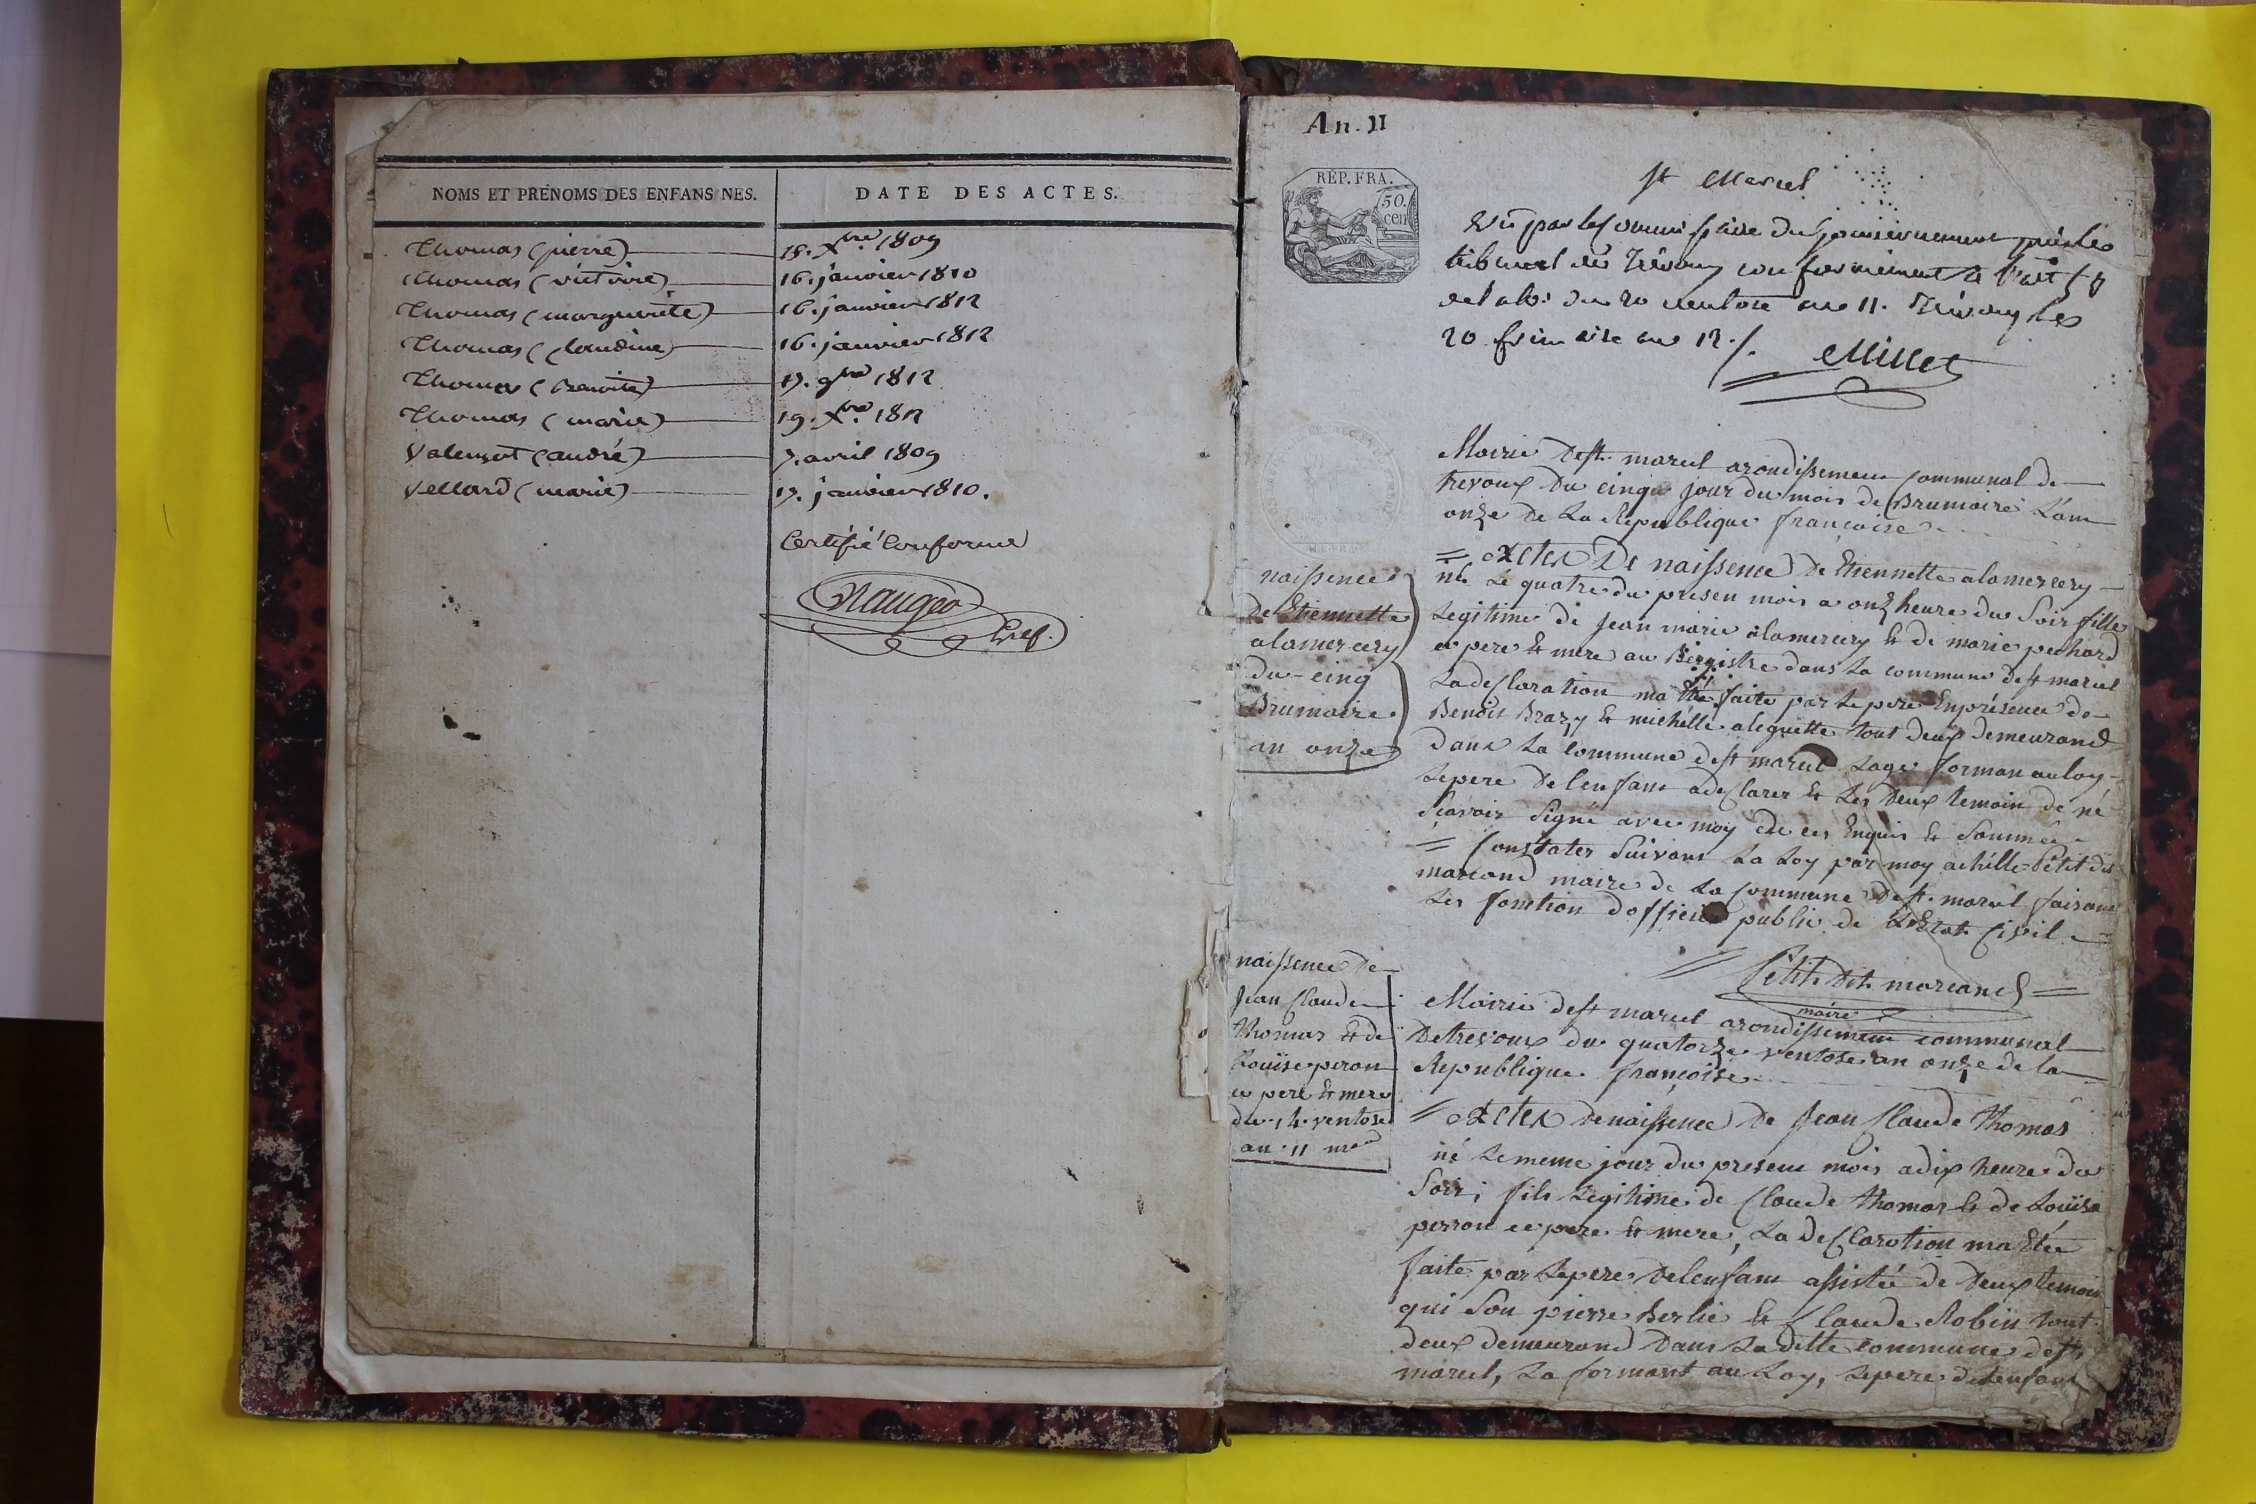 NOMS ET PRÉNOMS DES ENFANS NÉS.
DATE DES ACTES.
Thomas (pierre) 18. Xbre 1809
Thomas (victoire) 16. janvier 1810
Thomas (marguerite) 16. janvier 1812
Thomas (claudine) 16. janvier 1812
Thomas (Benoite) 17. 9bre 1812
Thomas (marie) 19. Xbre 1812
Valençot (andré) 7. avril 1809
Vellard (marie) 17. janvier 1810.
Certifié conforme
Naugeo
Gref.
An. 11
RÉP. FRA.
50.
cen
St Marcel
Vû par le Commissaire du gouvernement près le
tribunal de Trévoux conformément à l'art
de la loi du 20 ventose an 11. Trévoux le
20 frimaire an 12 ./.
Millet
Mairie de st. marcel arondissement communal de
trevoux Du cinq jour du mois de Brumaire L'an
onze De La Republique françoise
= actes De naissence De Etiennette alamercery
né Le quatre du presen mois a onz heure du Soir fille
Legitime de jean marie alamercery et de marie pechard
ce pere et mere au Bergistre dans La commune de st marcel
La declaration ma été faite par Le pere En présence de
Benoît Brazy et michélle aleguette tout deux demeurand
dans La commune de st marcel Lage forman au loy
Le pere De lenfant a declarer et Les deux temoin de né
Scavoir Signé avec moy de ces Enquis et Sommée
= Constater Suivant La Loy par moy achille Petit dit
marcand maire de La Commune de st. marcel faisant
Les fonction d officier public de L'Etat Civil
Petit Dit marcand
maire
naissence
de Etiennette
alamercery
du cinq
Brumaire
an onze
Mairie de st marcel arondissement communal
De trevoux du quatorze ventose an onze de la
Republique françoise
= actes de naissence De Jean Claude Thomas
né Le meme jour du presen mois a dix heure du
Soir, fils Legitime de Claude Thomas et de Louïse
perron ce pere et mere, La declaration ma Eté
faite par Le pere De lenfant assistée de Deux temoin
qui Son pierre Berlie et Claude Robin tout
deux demeurand Dans La ditte commune de st
marcel, La formant au Loy, Le pere de lenfant
naissence de
Jean Claude
Thomas et de
Louïse peron
ce pere et mere
du 14 ventose
an 11 me